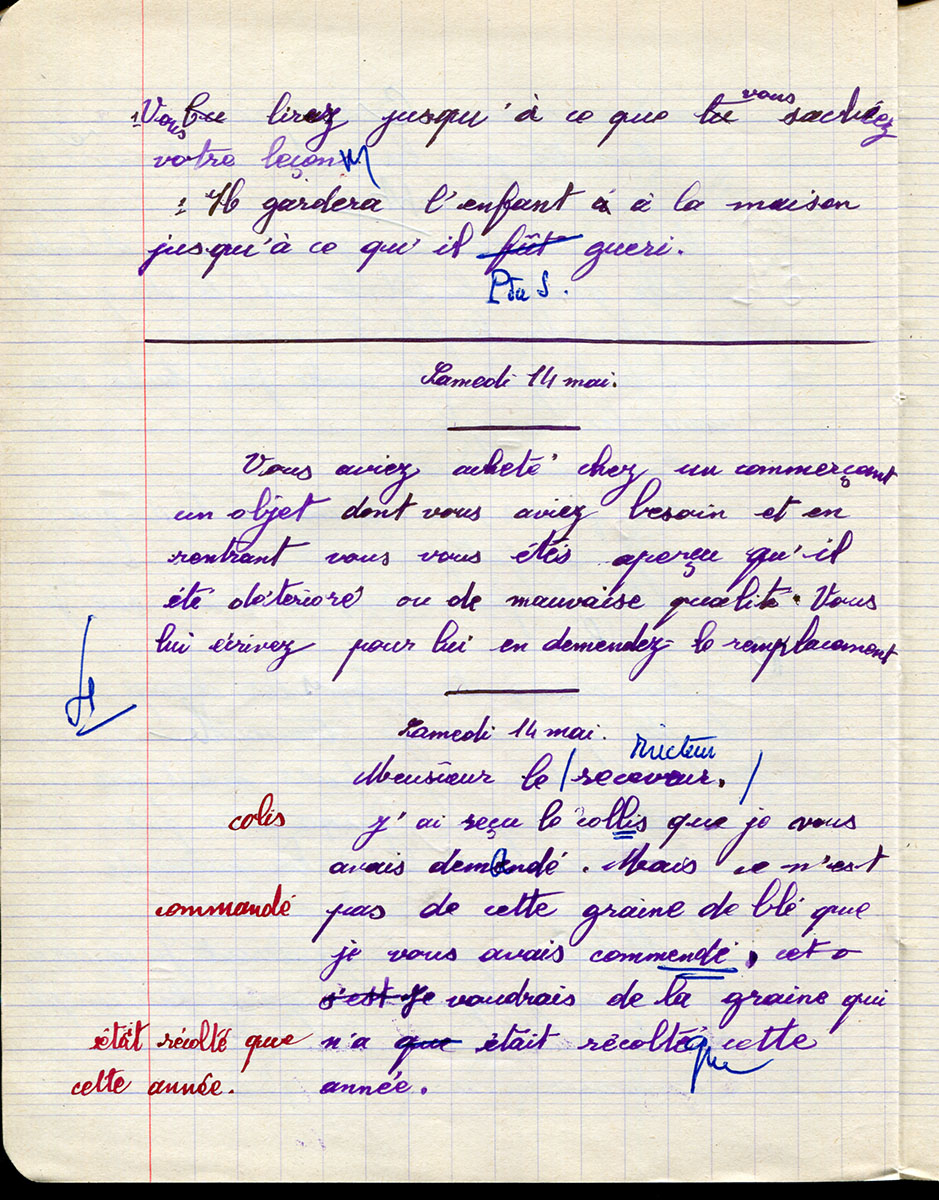 Vous tu lirez jusqu'à ce que tu vous sachiez
votre leçon
Il gardera l'enfant à à la maison
jusqu'à ce qu'il fût gueri.
Samedi 14 mai.
Vous aviez acheté chez un commerçant
un objet dont vous aviez besoin et en
rentrant vous vous étés aperçu qu'il
été déterioré ou de mauvaise qualité. Vous
lui écrivez pour lui en demendez le remplacement
Samedi 14 mai.
Monsieur le receveur.
colis j'ai reçu le collis que je vous
avais demandé. Mais ce n'est
commandé pas de cette graine de blé que
je vous avais commendé, cet
s'est je voudrais de la graine qui
était récolté que n'a que était récolté que cette
cette année. année.